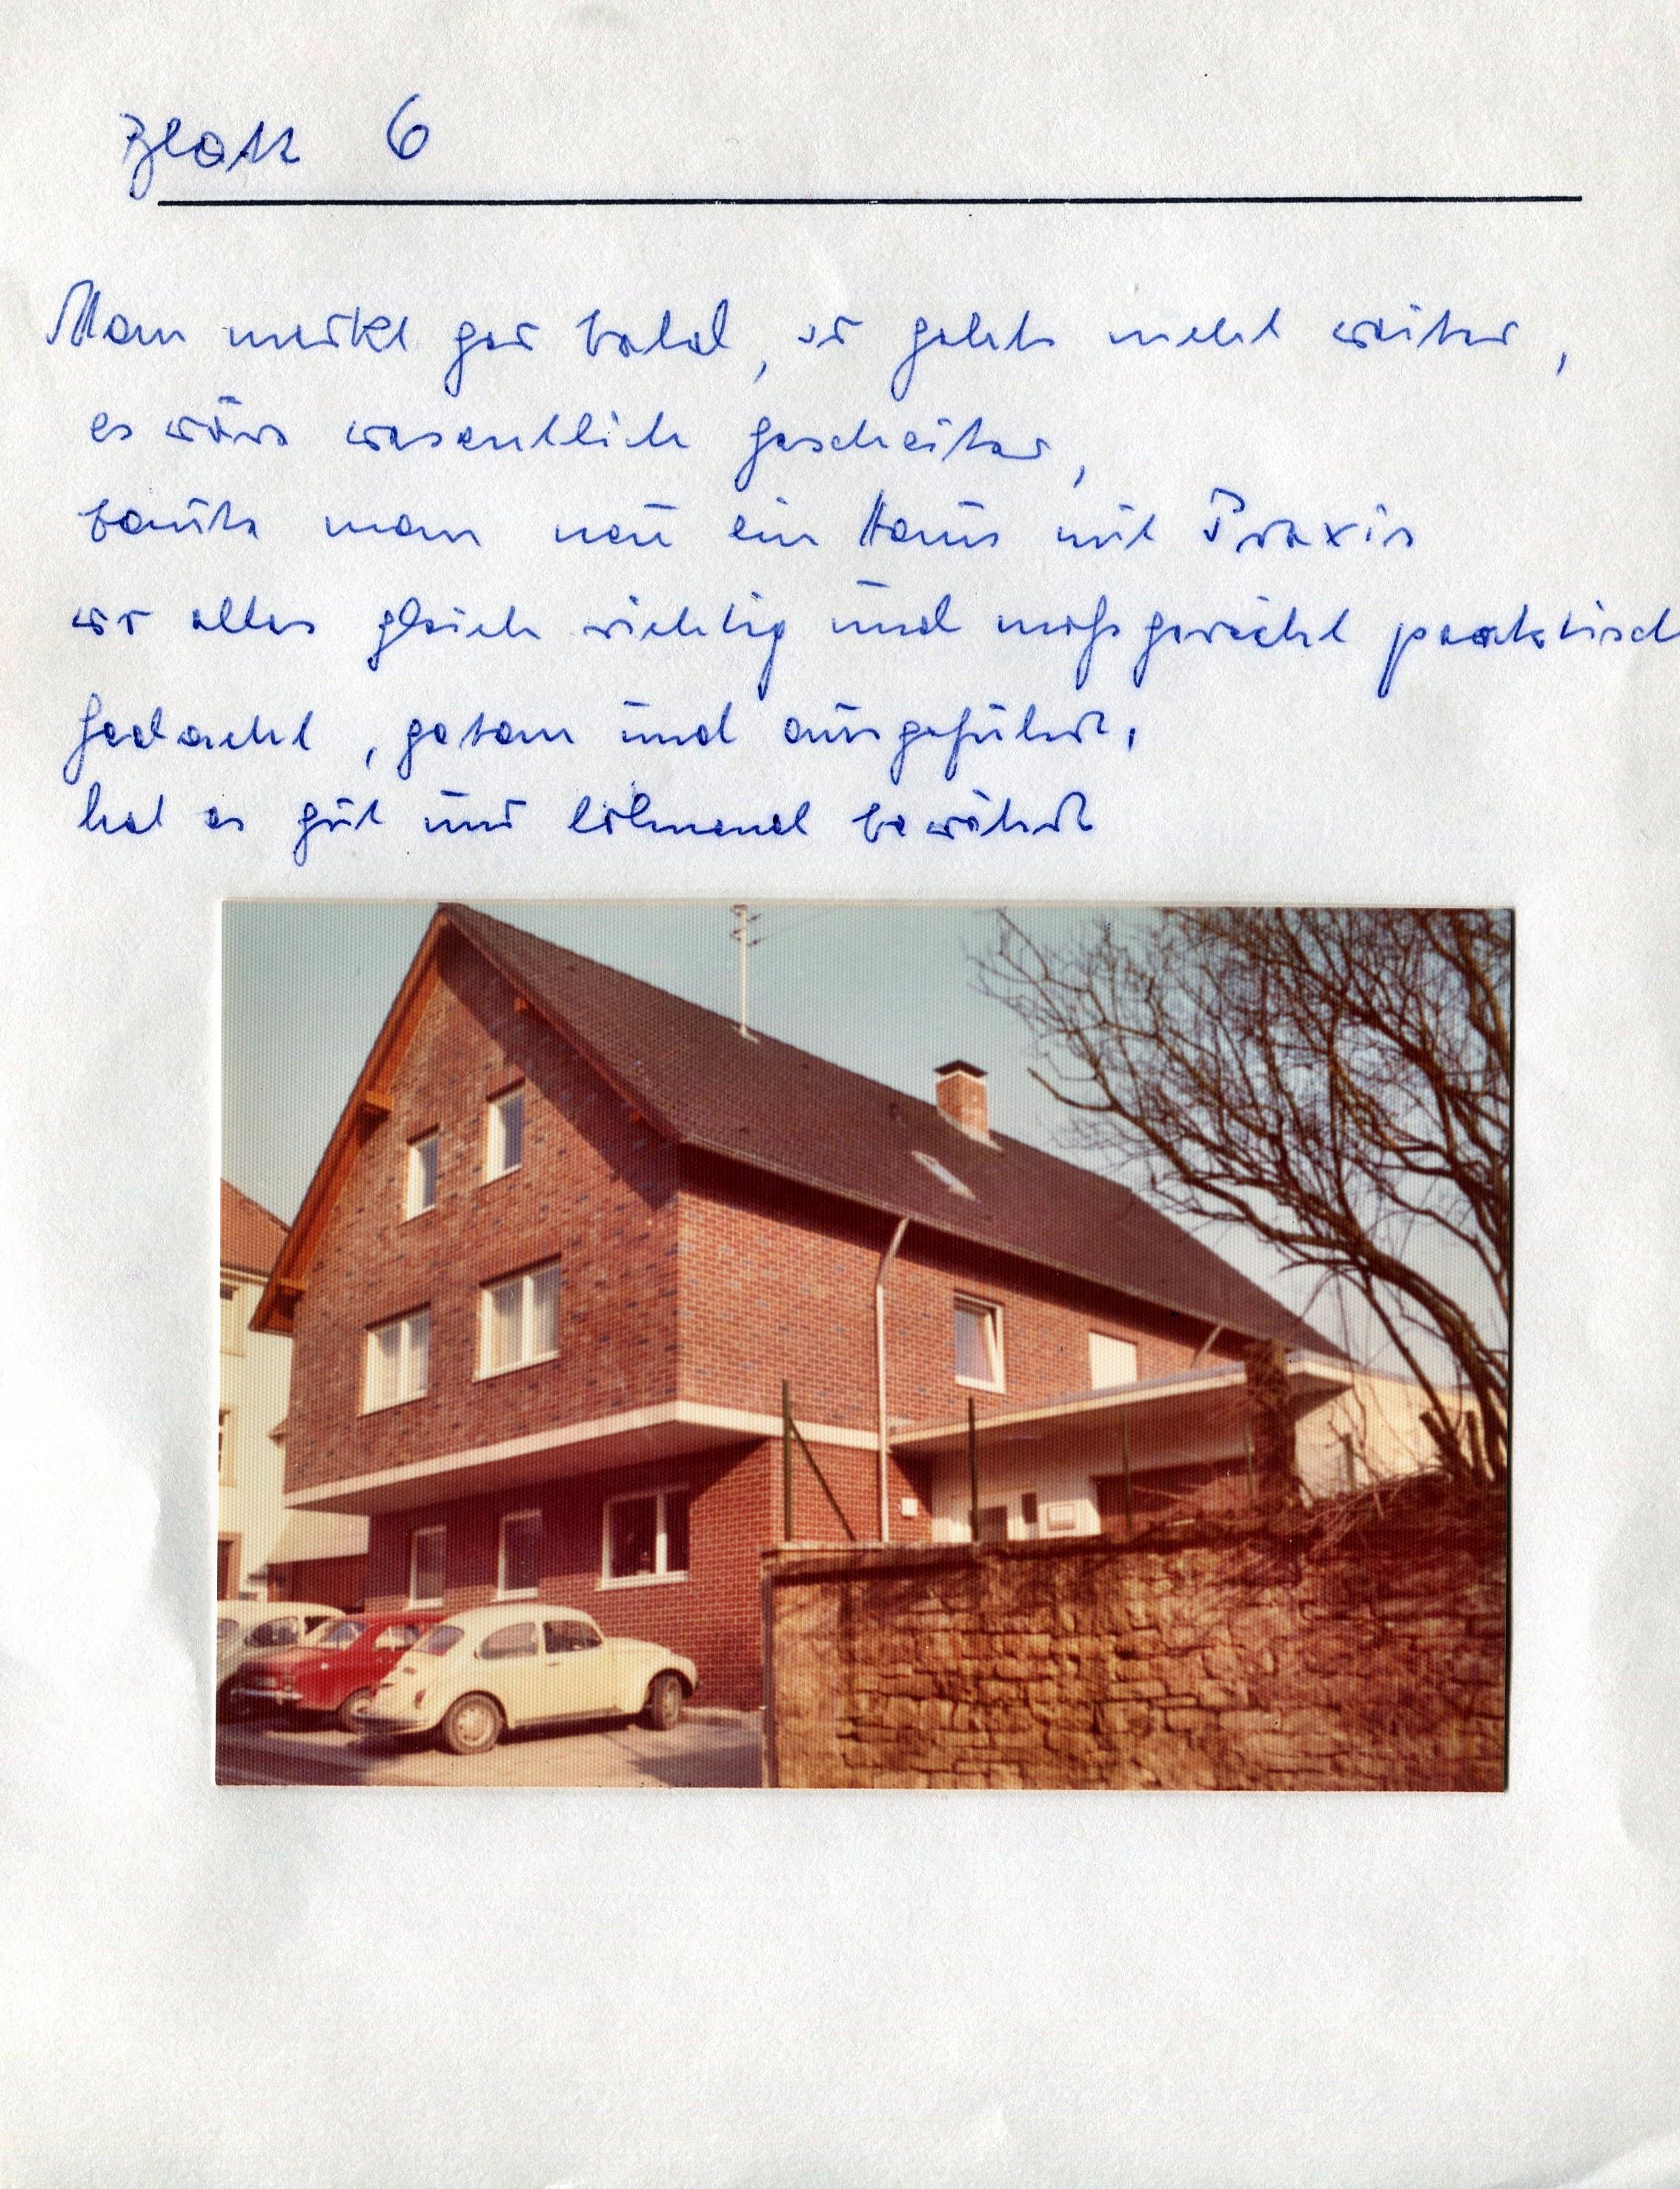 Blatt 6
Man merkt gar bald, so gehts nicht weiter,
es wäre wesentlich gescheiter,
baute man neu ein Haus mit Praxis
wo alles gleich richtig und maßgerecht praktisch
gedacht, getan und ausgeführt,
hat es gut und lohnend bewährt